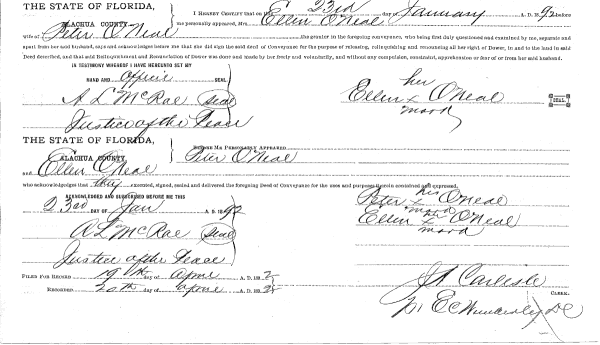 THE STATE OF FLORIDA,
ALACHUA COUNTY
I HEREBY CERTIFY that on 23rd January A. D. 1892 before
me personally appeared, Mrs. Ellen O'Neal
wife of Peter O'Neal the grantor in the foregoing conveyance, who being first duly questioned and examined by me, separate and
apart from her said husband, says and acknowledges before me that she did sign the said deed of Conveyance for the purpose of releasing, relinquishing and renouncing all her right, of Dower, in and to the land in said
Deed described, and that said Relinquishment and Renunciation of Dower was done and made by her freely and voluntarily, and without any compulsion, constraint, apprehension or fear of or from her said husband.
IN TESTIMONY WHEREOF I HAVE HEREUNTO SET MY
HAND AND office SEAL.
A. L. McRae (Seal)
Justice of the Peace
her
Ellen x O'Neal SEAL
mark
THE STATE OF FLORIDA,
ALACHUA COUNTY
BEFORE ME PERSONALLY APPEARED
Peter O'Neal
and Ellen O'Neal
who acknowledges that they executed, signed, sealed and delivered the foregoing Deed of Conveyance for the uses and purposes therein contained and expressed.
ACKNOWLEDGED AND SUBSCRIBED BEFORE ME THIS
23rd DAY OF Jan A. D. 1892
A L McRae (Seal)
Justice of the Peace
his
Peter x O'Neal
mark
Ellen x O'Neal
mark
FILED FOR RECORD 19th day of April A. D. 1892
RECORDED 20th day of April A. D. 1892
Carlisle
CLERK.
DC